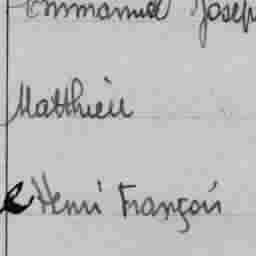 Emmanuel Joseph
Matthieu
Henri François